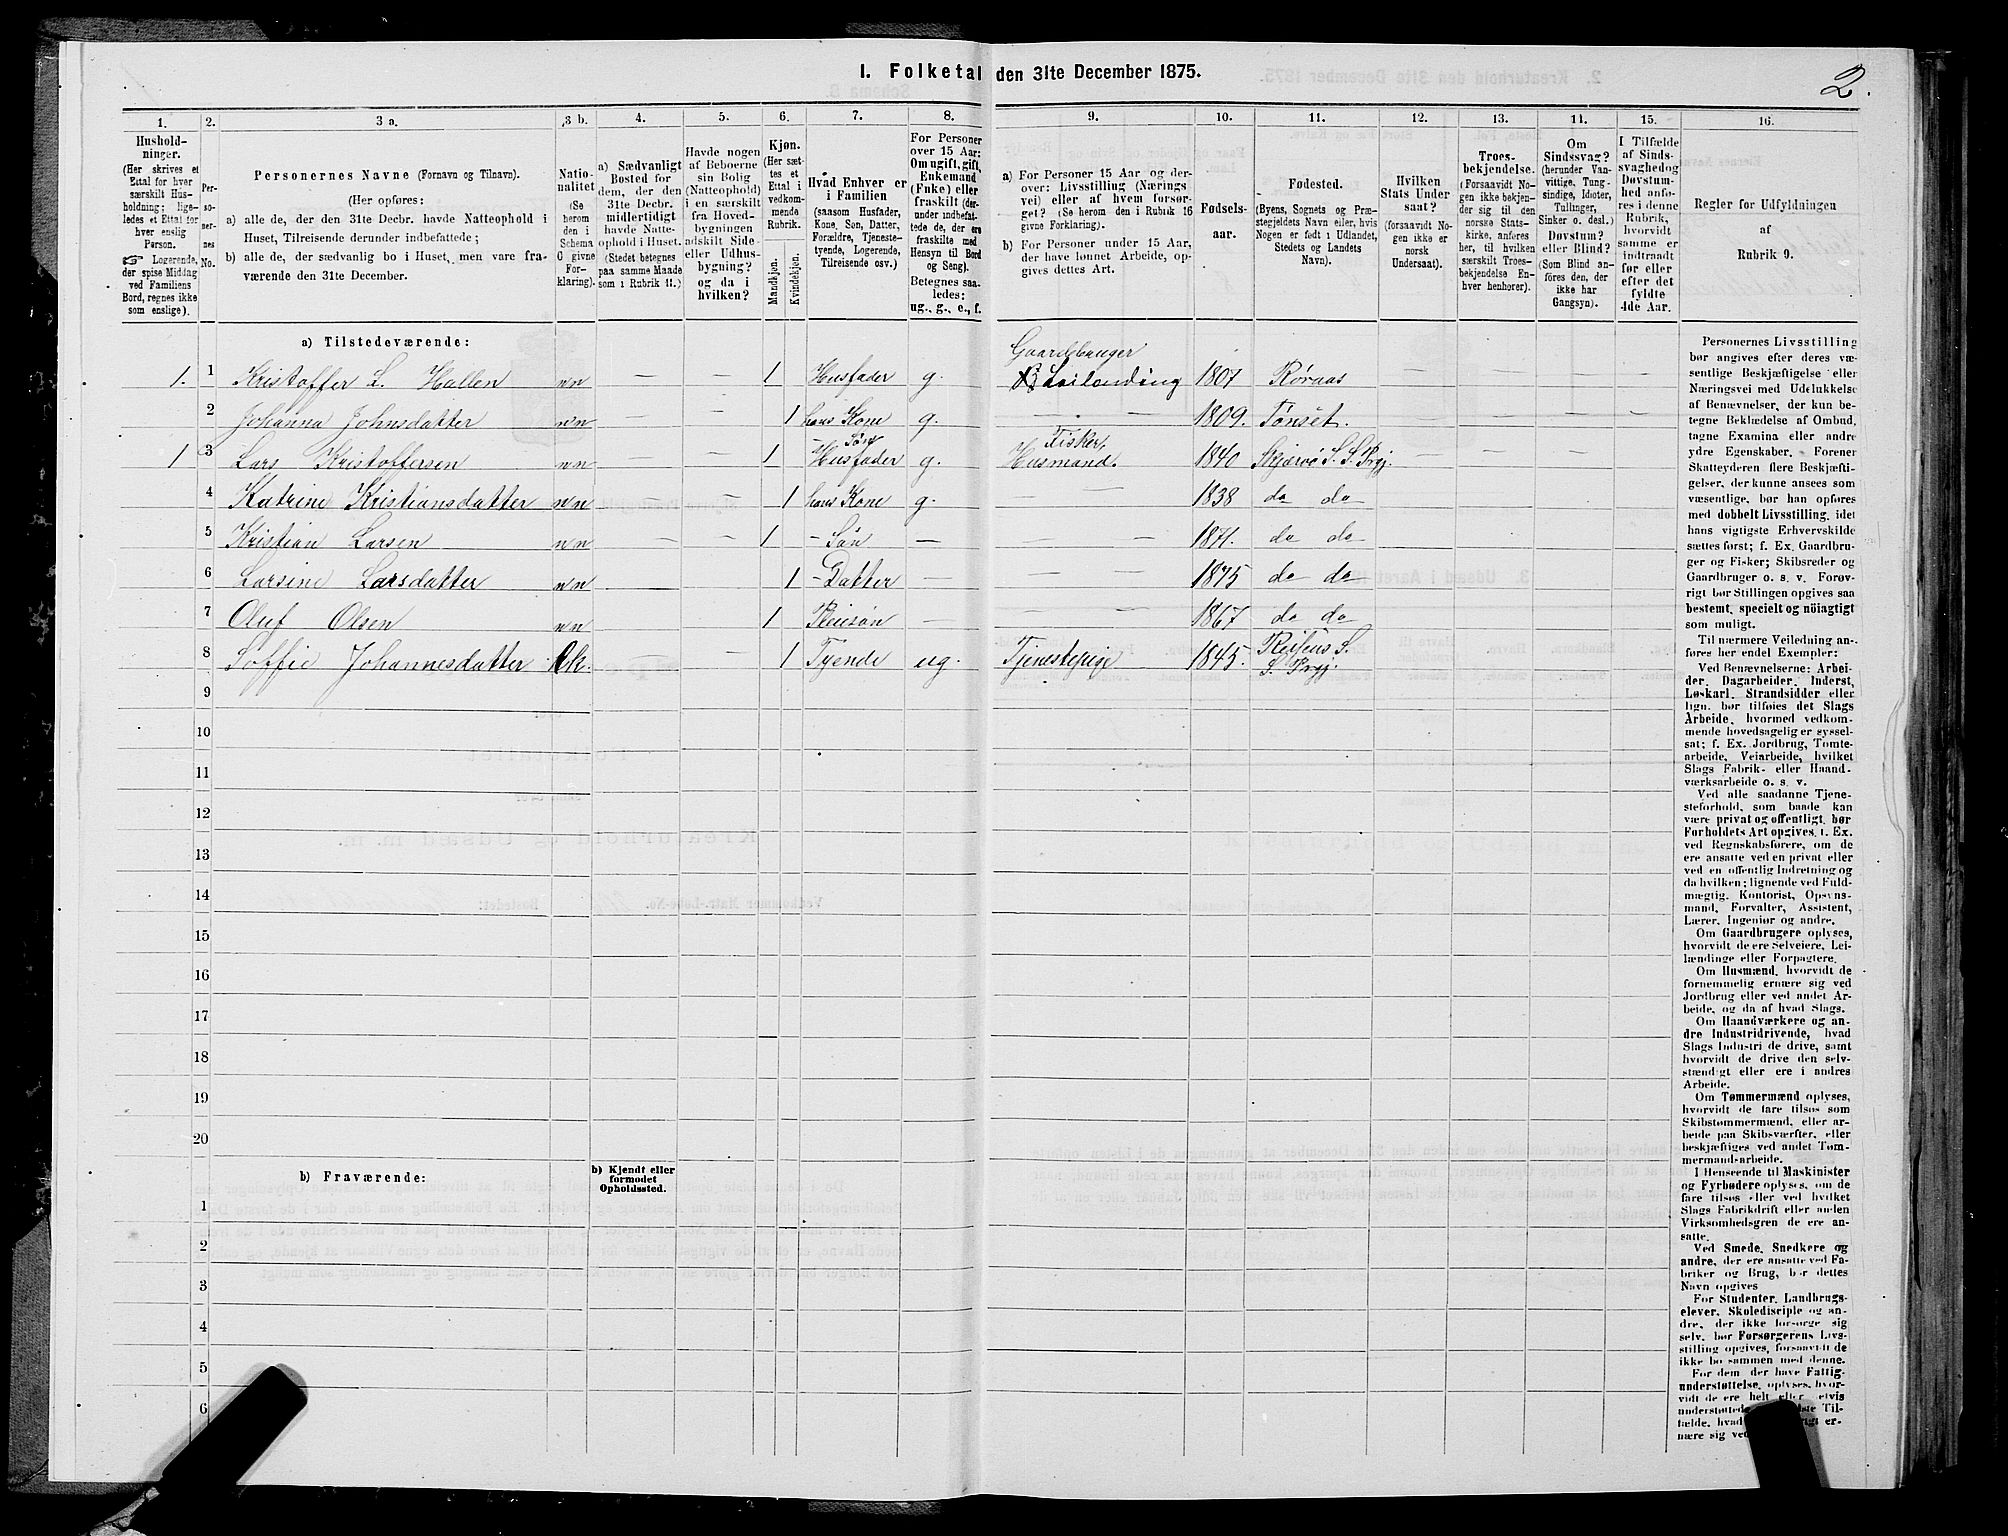 I. Folketal den 31te December 1875.
2.
1. 2. 3 a. 3 b. 4. 5. 6. 7. 8. 9. 10. 11. 12. 13. 11. 15. 16.
Hushold-
ninger.
(Her skrives et
Ettal for hver
særskilt Hus-
holdning; lige-
ledes et Ettal for
hver enslig
Person.
☞ Logerende,
der spise Middag
ved Familiens
Bord, regnes ikke
som enslige).
Per-
so-
ner-
nes
No.
Personernes Navne (Fornavn og Tilnavn).
(Her opføres:
a) alle de, der den 31te Decbr. havde Natteophold i
Huset, Tilreisende derunder indbefattede;
b) alle de, der sædvanlig bo i Huset, men vare fra-
værende den 31te December.
Natio-
nalitet
(Se
herom
den i
Schema
C givne
For-
klaring).
a) Sædvanligt
Bosted for
dem, der den
31te Decbr.
midlertidigt
havde Natte-
ophold i Huset.
(Stedet betegnes
paa samme Maade
som i Rubrik 11.)
Havde nogen
af Beboerne
sin Bolig
(Natteophold)
i en særskilt
fra Hoved-
bygningen
adskilt Side-
eller Udhus-
bygning?
og da i
hvilken?
Kjøn.
(Her sæt-
tes et
Ettal i
vedkom-
mende
Rubrik.
Mandkjøn.
Kvindekjøn.
Hvad Enhver er
i Familien
(saasom Husfader,
Kone, Søn, Datter,
Forældre, Tjeneste-
tyende, Logerende,
Tilreisende osv.)
For Personer
over 15 Aar:
Om ugift, gift,
Enkemand
(Enke) eller
fraskilt (der-
under indbefat-
tede de, der ere
fraskilte med
Hensyn til Bord
og Seng).
Betegnes saa-
ledes:
ug., g., e., f.
a) For Personer 15 Aar og der-
over: Livsstilling (Nærings
vei) eller af hvem forsør-
get? (Se herom den i Rubrik 16
givne Forklaring).
b) For Personer under 15 Aar,
der have lønnet Arbeide, op-
gives dettes Art.
Fødsels-
aar.
Fødested.
(Byens, Sognets og Præ-
stegjeldets Navn eller, hvis
Nogen er født i Udlandet,
Stedets og Landets
Navn).
Hvilken
Stats Under
saat?
(forsaavidt No-
gen ikke er
norsk
Undersaat).
Troes-
bekjendelse.
(Forsaavidt No-
gen ikke bekjen-
der sig til den
norske Stats-
kirke, anføres
her, til hvilken
særskilt Troes-
bekjendelse En-
hver henhører).
Om
Sindssvag?
(herunder Van-
vittige, Tung-
sindige, Idioter,
Tullinger,
Sinker o. desl.)
Døvstum?
eller Blind?
(Som Blind an-
føres den, der
ikke har
Gangsyn).
I Tilfælde
af Sinds-
svaghedog
Døvstum-
hed anfø-
res i denne
Rubrik,
hvorvidt
samme er
indtraadt
før eller
efter det
fyldte
4de Aar.
Regler for Udfyldningen
af
Rubrik 9.
a) Tilstedeværende:
1. 1 Kristoffer L. Hallen nn — — 1 Husfader g. Gaardbruger Leilending 1807 Røraas
2 Johanna Johnsdatter nn — — 1 hans Kone g. — — 1809. Tønset.
1 3 Lars Kristoffersen nn — — 1 Søn Husfader g. Fisker, Husmand. 1840 Skjærvø S. S. Prgj.
4 Katrine Kristiansdatter nn — — 1 hans Kone g. — — 1838 do do
5 Kristian Larsen nn — — 1 – Søn — — — 1871. do do
6 Larsine Larsdatter nn 1 – Datter — — — 1875 do do
7 Oluf Olsen nn 1 Pleiesøn — — — 1867 do do
8 Soffie Johannesdatter k. — — 1 Tyende ug. Tjenestepige 1845. S. S. Prgj
9
10
11
12
13
14
15
16
17
18
19
20
b) Fraværende:
b) Kjendt eller
formodet
Opholdssted.
1
2
3
4
5
6
Personernes Livsstilling
bør angives efter deres væ-
sentlige Beskjæftigelse eller
Næringsvei med Udelukkelse
af Benævnelser, der kun be-
tegne Beklædelse af Ombud,
tagne Examina eller andre
ydre Egenskaber. Forener
Skatteyderen flere Beskjæfti-
gelser, der kunne ansees som
væsentlige, bør han opføres
med dobbelt Livsstilling, idet
hans vigtigste Erhvervskilde
sættes først; f. Ex. Gaardbru-
ger og Fisker; Skibsreder og
Gaardbruger o. s. v. Forøv-
rigt bør Stillingen opgives saa
bestemt, specielt og nöiagtigt
som muligt.
Til nærmere Veiledning an-
føres her endel Exempler:
Ved Benævnelserne: Arbei-
der, Dagarbeider, Inderst,
Løskarl, Strandsidder eller
lign. bør tilføies det Slags
Arbeide, hvormed vedkom-
mende hovedsagelig er syssel-
sat; f. Ex. Jordbrug, Tomte-
arbeide, Veiarbeide, hvilket
Slags Fabrik- eller Haand-
værksarbeide o. s. v.
Ved alle saadanne Tjene-
steforhold, som baade kan
være privat og offentligt, bør
Forholdets Art opgives, f. Ex.
ved Regnskabsførere, om de
ere ansatte ved en privat eller
ved en offentlig Indretning og
da hvilken; lignende ved Fuld-
mægtig, Kontorist, Opsyns-
mand, Forvalter, Assistent,
Lærer, Ingeniør og andre.
Om Gaardbrugere oplyses,
hvorvidt de ere Selveiere, Lei-
lændinge eller Forpagtere.
Om Husmænd, hvorvidt de
fornemmelig ernære sig ved
Jordbrug eller ved andet Ar-
beide, og da af hvad Slags.
Om Haandværkere og an-
dre Industridrivende, hvad
Slags Industri de drive, samt
hvorvidt de drive den selv-
stændigt eller ere i andres
Arbeide.
Om Tømmermænd oplyses,
hvorvidt de fare tilsøs som
Skibstømmermænd, eller ar-
beide paa Skibsværfter, eller
beskjæftiges ved andet Tøm-
mermandsarbeide.
I Henseende til Maskinister
og Fyrbødere oplyses, om de
fare tilsøs eller ved hvilket
Slags Fabrikdrift eller anden
Virksomhedsgren de ere an-
satte.
Ved Smede, Snedkere og
andre, der ere ansatte ved Fa-
briker og Brug, bør dettes
Navn opgives
For Studenter, Landbrugs-
elever, Skoledisciple og an-
dre, der ikke forsørge sig
selv, bør Forsørgerens Livs-
stilling opgives, forsaavidt de
ikke bo sammen med denne.
For dem der have Fattig-
understøttelse, oplyses, hvor-
vidt de ere helt eller
understøttede Til-
fælde, hvad er-
nære sig ved